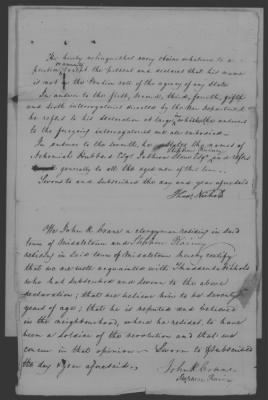 He hereby relinquishes every claim whatever to a
pension or annuity except the present and declares that his name
is not on the Pension roll of the agency of any State
In answer to the first, second, third, fourth, fifth
and sixth interrogatories directed by the War Department
he refers to his declaration at large, in which the answers
to the foregoing interrogatories are embodied
In answer to the seventh, he states the names of
Stephen Ranney
Nehemiah Hubbard Esqr Joshua Stow Esqr and refers
generally to all the aged men of the town.
Sworn to and subscribed the day and year aforesaid
Thads Nichols
We John R. Crane a clergyman residing in said
town of Middletown and Stephen Ranney
residing in said town of Middletown hereby certify
that we are well acquainted with Thaddeus Nichols
who has subscribed and sworn to the above
declaration; that we believe him to be seventy
years of age; that he is reputed and believed
in the neighbourhood, where he resides, to have
been a soldier of the revolution and that we
concur in that opinion - Sworn to & subscribed
the day & year aforesaid.
John R Crane
Stephen Ranney